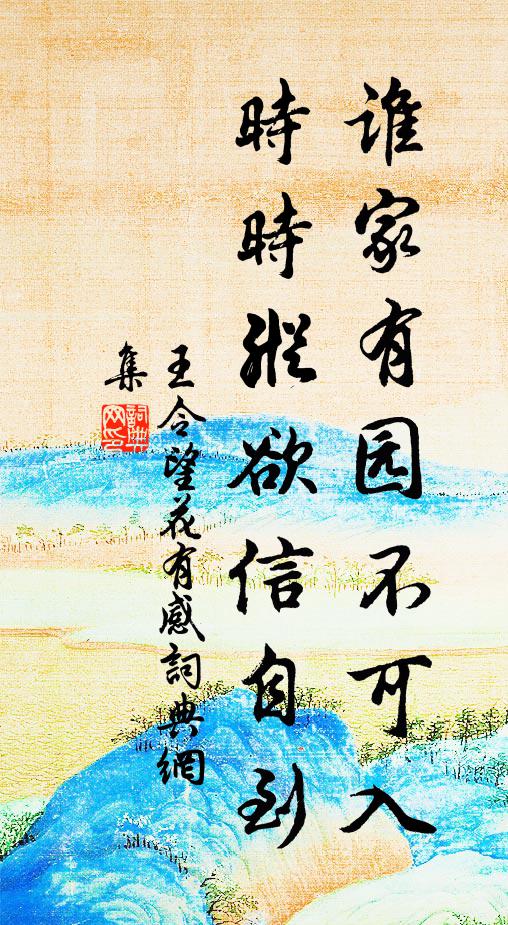 誰家有园不可入
時時縱欲信自到
王令望花有感詞典網
集
詞典网印